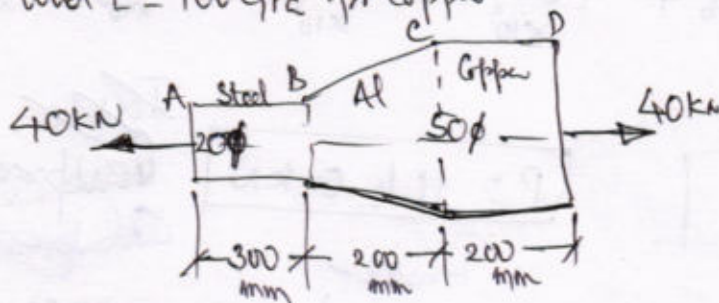 E = 100 GPa for Copper
C D
A Steel B Al Copper
40KN 20φ 50φ 40KN
300 200 200
mm mm mm